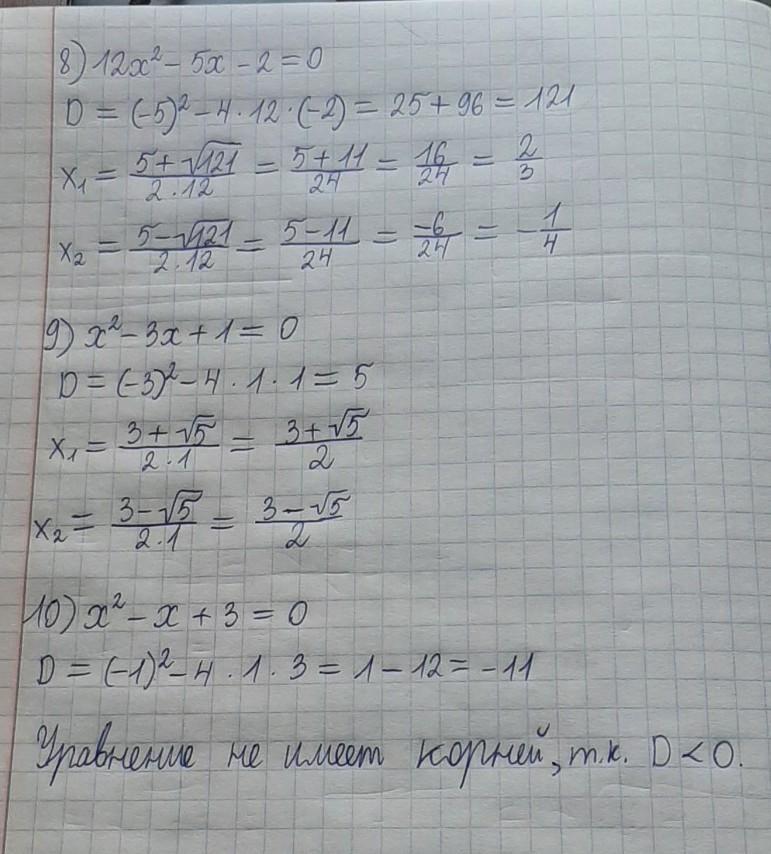 8) 12x² - 5x - 2 = 0
D = (-5)² - 4 · 12 · (-2) = 25 + 96 = 121
x₁ = (5 + √121)/(2 · 12) = (5 + 11)/24 = 16/24 = 2/3
x₂ = (5 - √121)/(2 · 12) = (5 - 11)/24 = -6/24 = -1/4
9) x² - 3x + 1 = 0
D = (-3)² - 4 · 1 · 1 = 5
x₁ = (3 + √5)/(2 · 1) = (3 + √5)/2
x₂ = (3 - √5)/(2 · 1) = (3 - √5)/2
10) x² - x + 3 = 0
D = (-1)² - 4 · 1 · 3 = 1 - 12 = -11
Уравнение не имеет корней, т.к. D < 0.